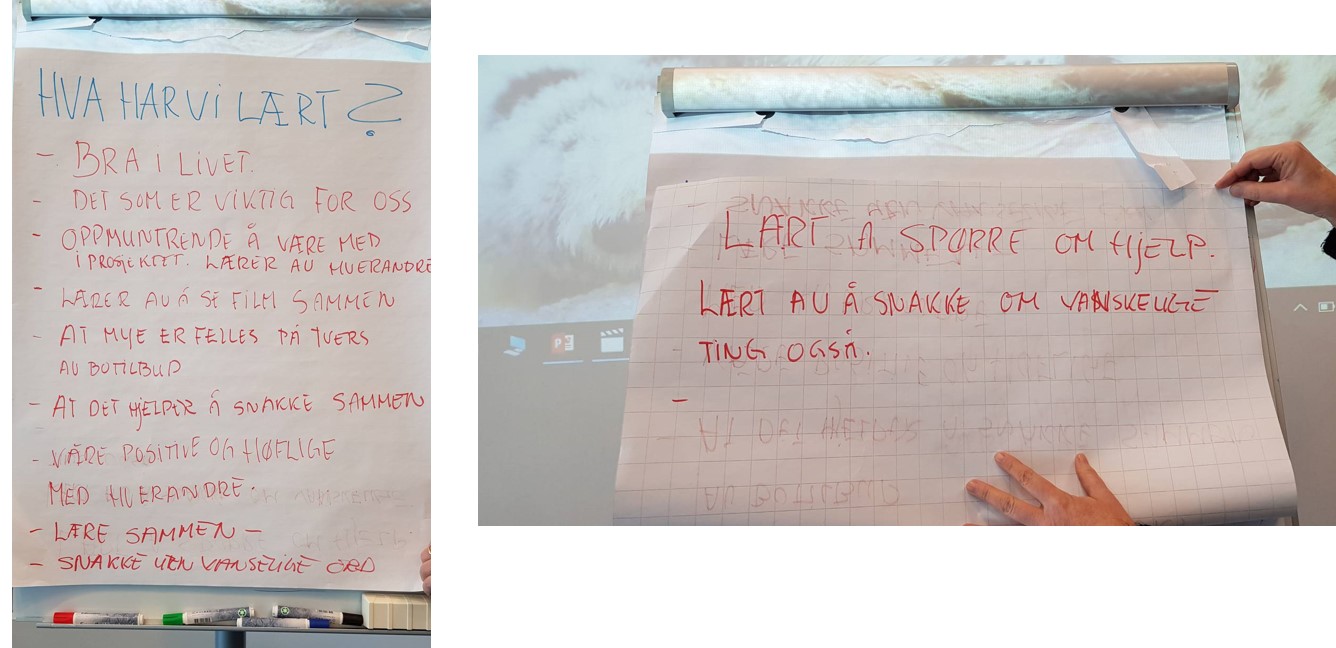 HVA HAR VI LÆRT?
- BRA I LIVET.
- DET SOM ER VIKTIG FOR OSS
- OPPMUNTRENDE Å VÆRE MED
I PROSJEKTET. LÆRER AV HVERANDRE
- LÆRER AV Å SE FILM SAMMEN
- AT MYE ER FELLES PÅ TVERS
AV BOTILBUD
- AT DET HJELPER Å SNAKKE SAMMEN
- VÆRE POSITIVE OG HØFLIGE
MED HVERANDRE.
- LÆRE SAMMEN -
- SNAKKE UTEN VANSELIGE ORD
LÆRT Å SPØRRE OM HJELP.
LÆRT AV Å SNAKKE OM VANSKELIGE
TING OGSÅ.
-